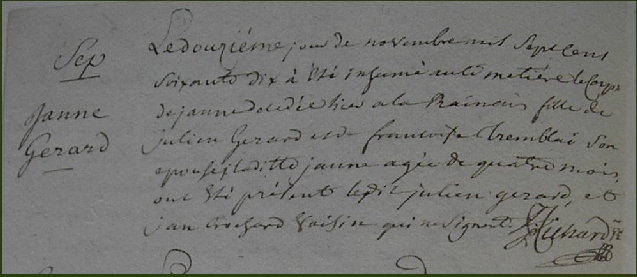 Sep
Janne
Gerard
Ledouziéme jour de novembre mil Sept Cens
Soixante dix à été inhumé au Cimetière le Corps
de janne decedée hier a la Rainais fille de
julien Gerard et de francoise tremblai Son
epouse laditte janne agée de quatre mois,
ont été présents ledit julien gerard, et
jan Crochard Voisin qui ne Signent.